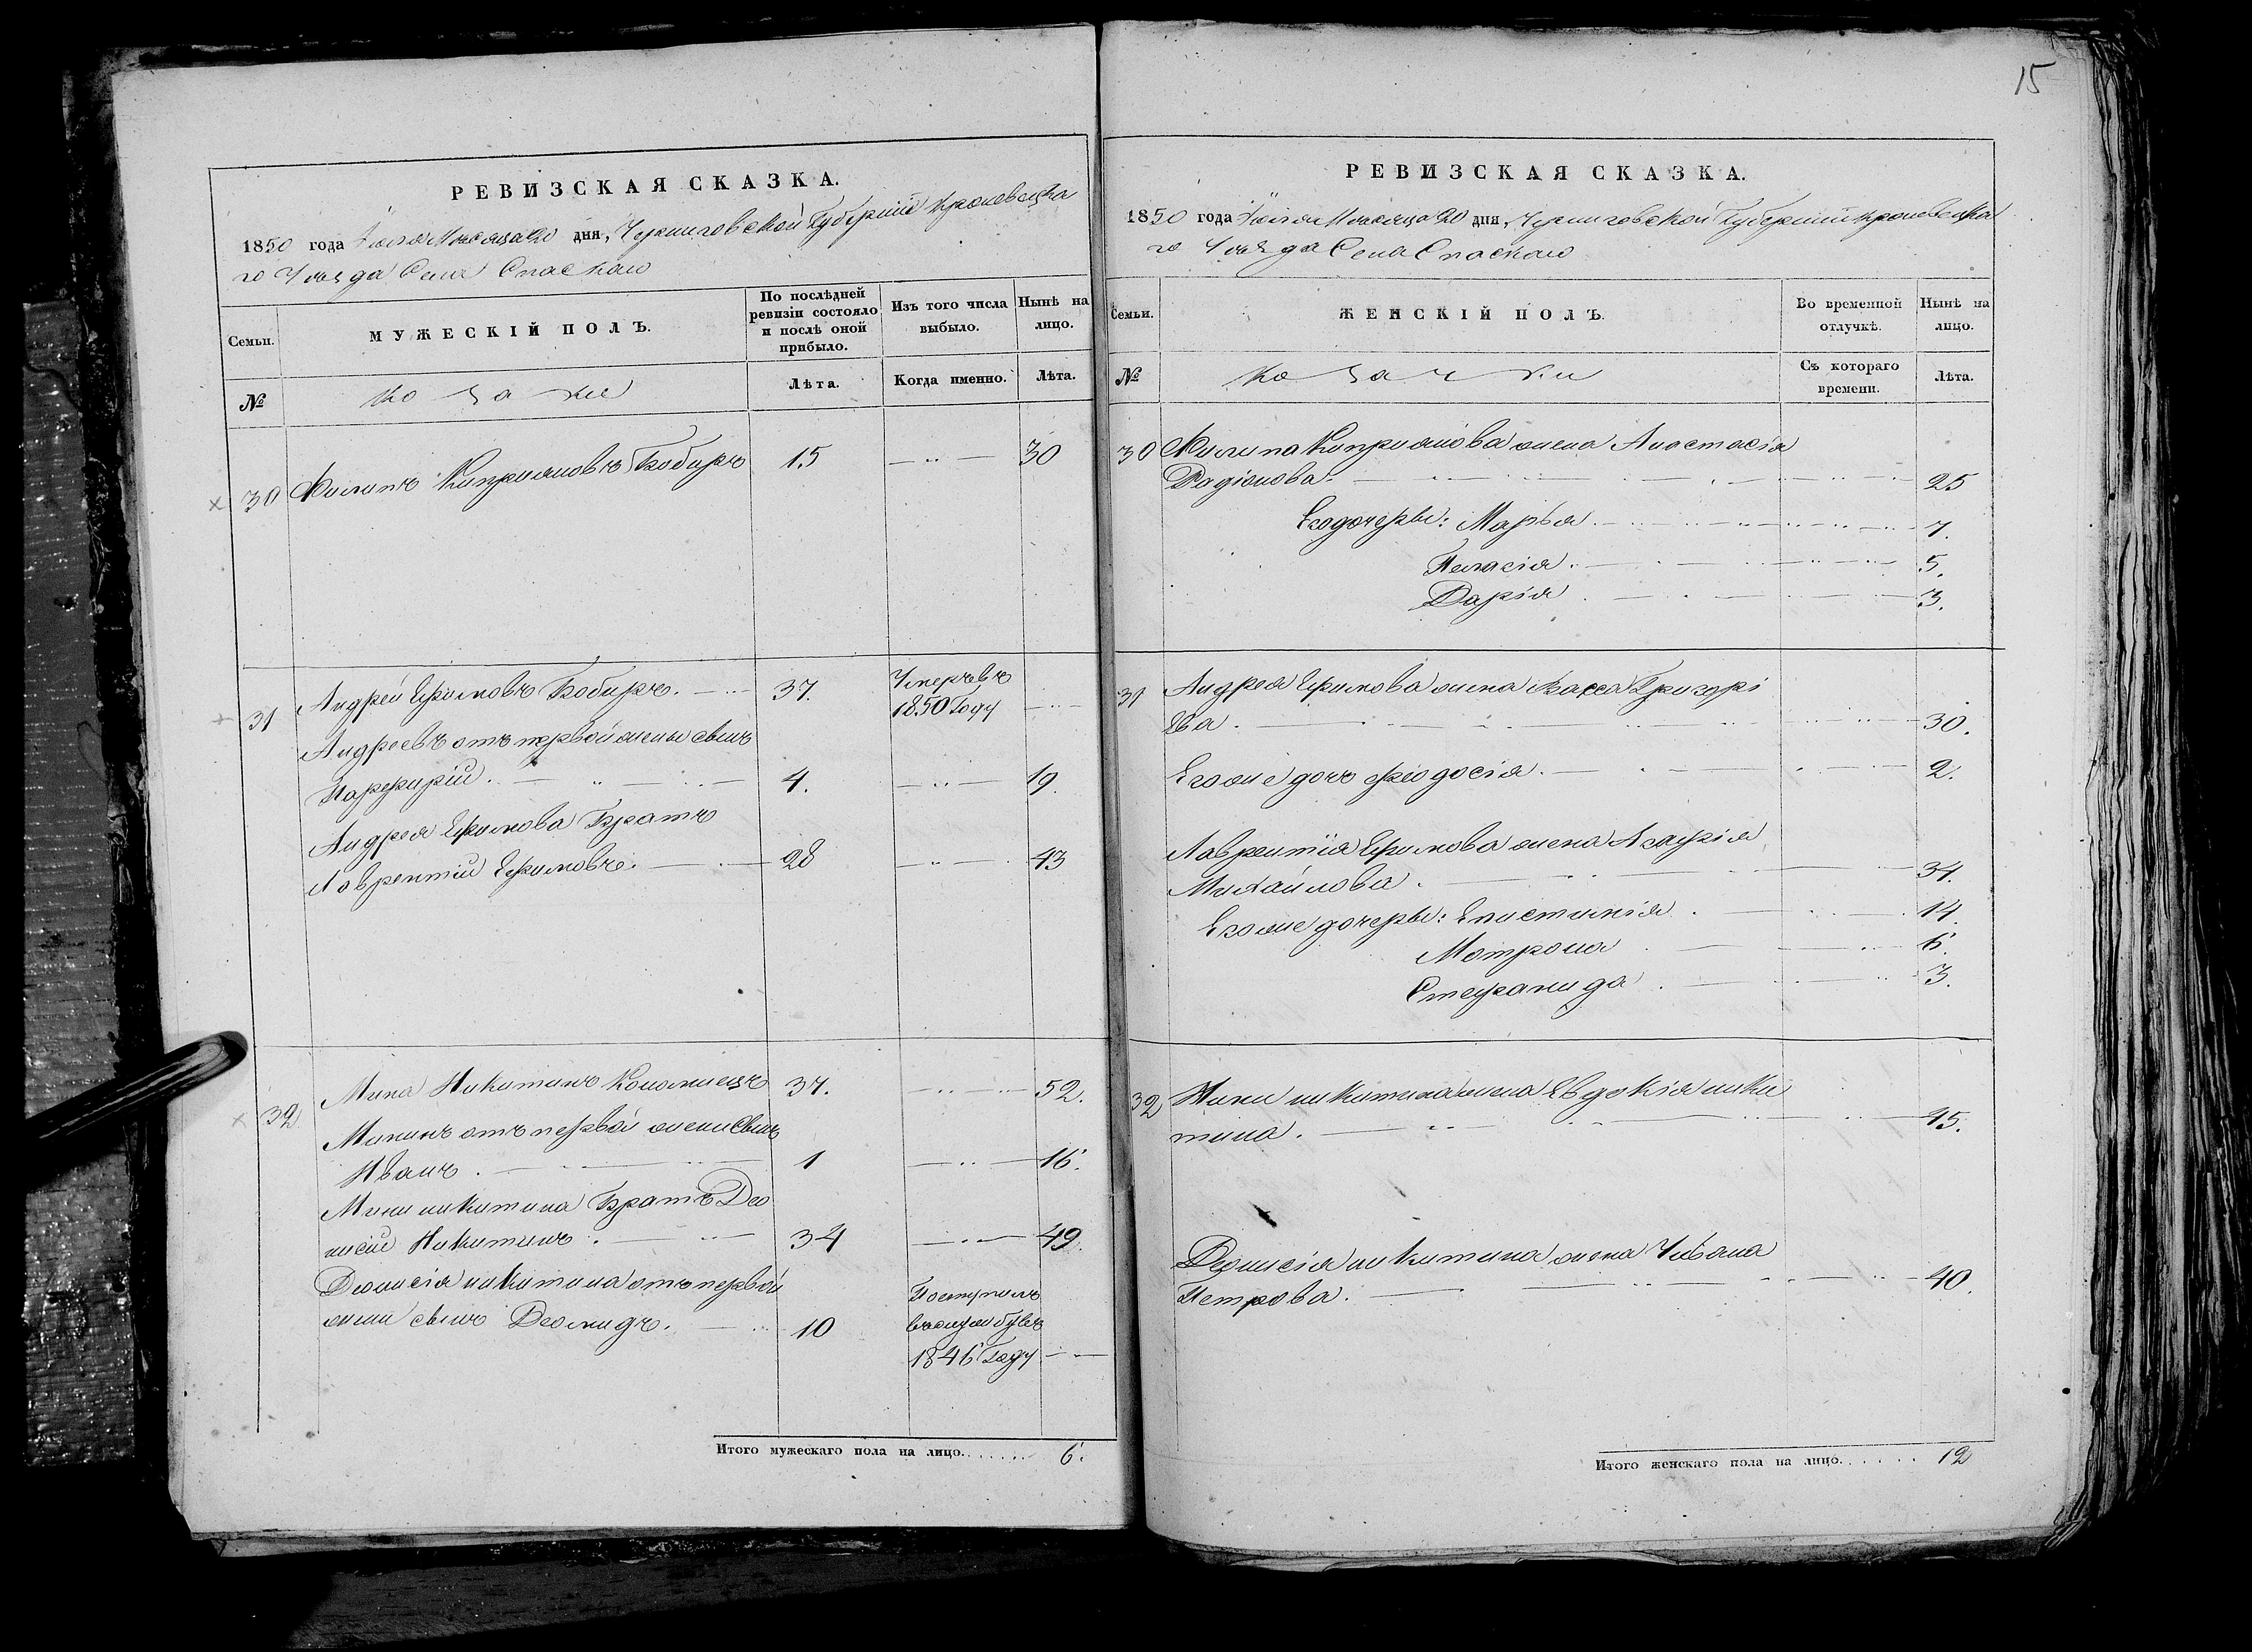 15
РЕВИЗСКАЯ СКАЗКА.
1850 года Июля Месяца 20 дня, Черниговской Губернии Кролевецка
го Уезда Села Спаскаго
Семьи.
МУЖЕСКІЙ ПОЛЪ.
По послѣдней
ревизіи состояло
и послѣ оной
прибыло.
Изъ того числа
выбыло.
Нынѣ на
лицо.
№
козаки
Лѣта.
Когда именно.
Лѣта.
30 Филипъ Киприяновъ Бобирь 15 30
31 Андрей Ефимовъ Бобирь. 37. Умеръ въ
1850 Году
Андреевъ отъ первой жены сынъ
Парфирий. 4. 19.
Андрея Ефимова Братъ
Лаврентий Ефимовъ. 28 43
32 Мина Никитинъ Коломиецъ 37. 52.
Мининъ отъ первой жены Сынъ
Иванъ. 1 16.
Мины никитина Братъ Део
нисий Никитинъ. 34 49.
Деонисія никитина отъ первой
жены сынъ Деомидъ. 10
Поступилъ
въ службу въ
1846 Году
Итого мужескаго пола на лицо....... 6.
РЕВИЗСКАЯ СКАЗКА.
1850 года Июля Месяца 20 дня, Черниговской Губернии Кролевецка
го Уезда Села Спаскаго
Семьи.
ЖЕНСКІЙ ПОЛЪ.
Во временной
отлучкѣ.
Нынѣ на
лицо.
№
козачки
Съ котораго
времени.
Лѣта.
30 Филипа Киприянова жена Анастасія
Радіонова. 25
Его дочеры: Марья. 7.
Пелагія. 5.
Дарія. 3.
31 Андрея Ефимова жена Васса Григорі
ева. 30.
Его же дочь Феодосія. 2.
Лаврентія Ефимова жена Агафія
Михайлова. 34.
Его же дочеры: Епистимія. 14.
Мотрона 6.
Стефанида. 3.
32 Мины никитина жена Евдокія ники
тина. 45.
Деонисія никитина жена Уліана
Петрова. 40.
Итого женскаго пола на лицо...... 12